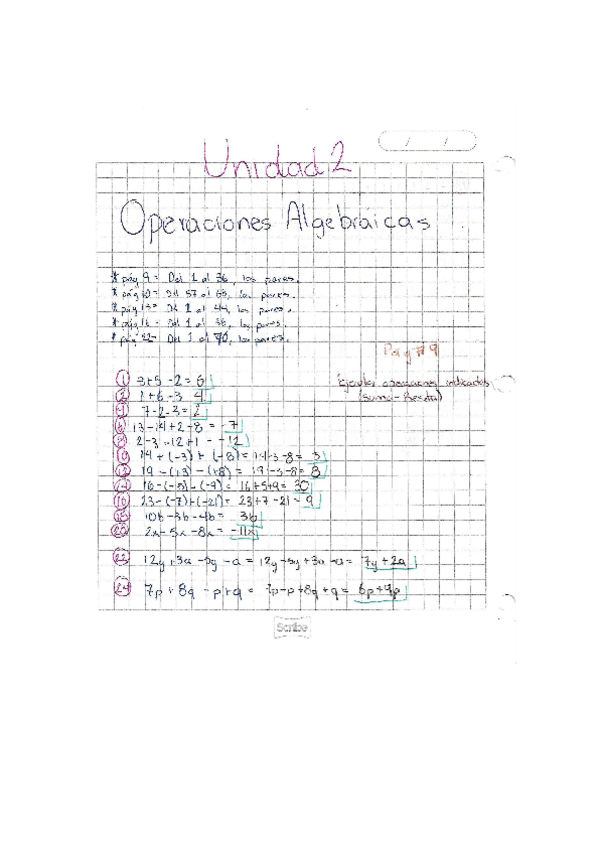 Unidad 2
Operaciones Algebraicas
* pág 9 = Del 1 al 36, los pares.
* pág 10 = Del 57 al 63, los pares.
* pág = Del 2 al 44, los pares.
* pág = Del 1 al 36, los pares.
* pág = Del 1 al 70, los pares.
Pag # 9
Ejercita operaciones indicadas
(suma-Resta)
① 3+5-2=6
② 1+6-3 4
④ 7-2-3=2
⑥ 13-14+2-8=-7
⑧ 2-3-12+1 - -12
⑩ 14+(-3)+(-8)=14-3-8= 3
⑫ 19-(+3)-(+8)= 19-3-8= 8
⑭ 16-(-5)-(-9)= 16+5+9= 30
⑯ 23-(-7)+(-21)= 23+7-21= 9
⑱ 10b-3b-4b= 3b
⑳ 2x-5x-8x= -11x
㉒ 12y+3a-5y-a=12y-5y+3a-a= 7y+2a
㉔ 7p+8q-p+q= 7p-p+8q+q= 6p+9p
Scribe